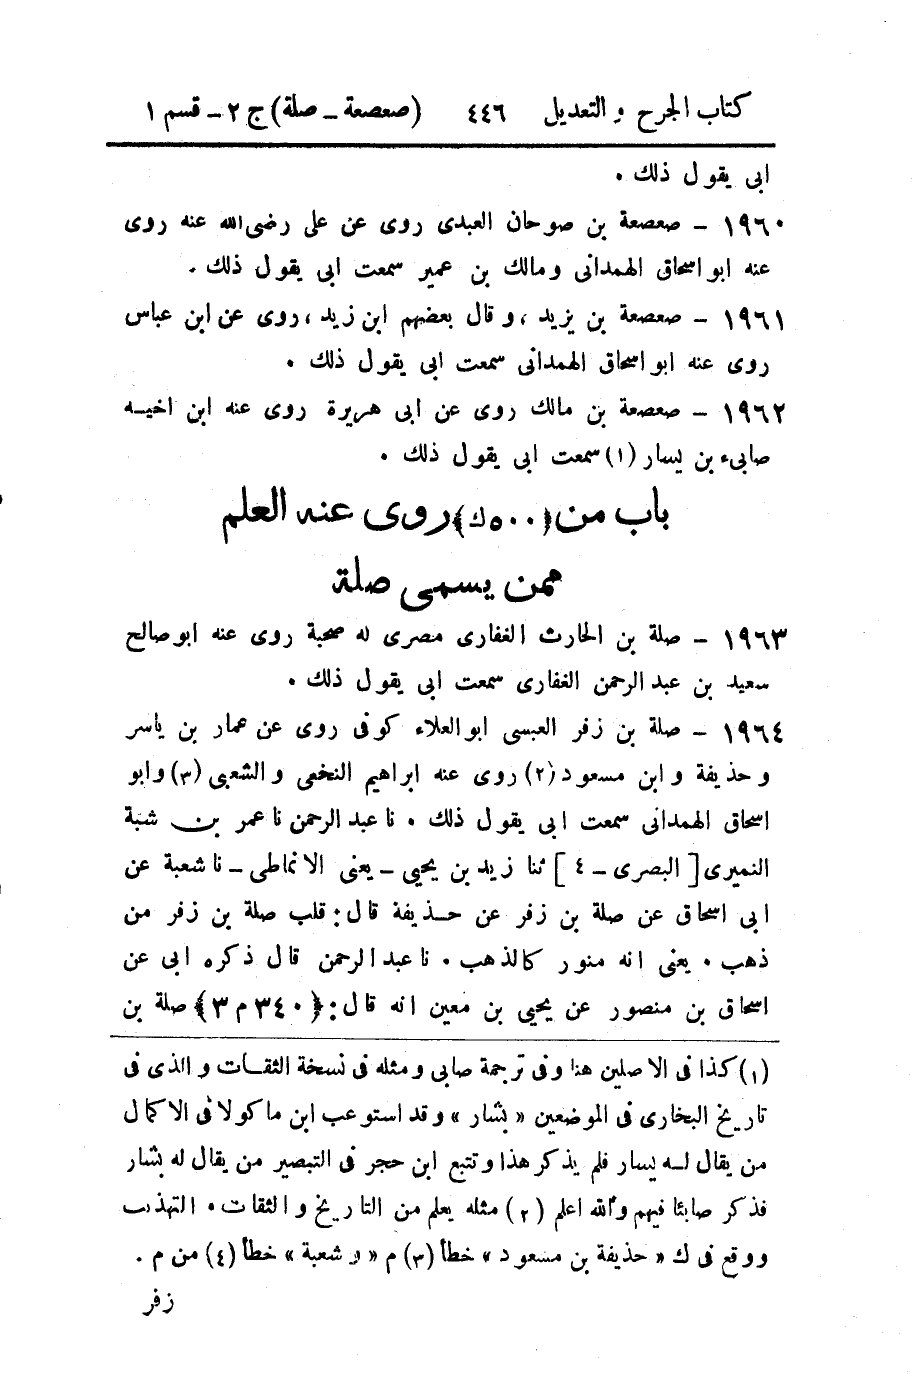 كتاب الجرح و التعديل ٤٤٦ (صعصعة ـ صلة) ج ٢ ـ قسم ١
ابى يقول ذلك ٠
١٩٦٠ - صعصعة بن صوحان العبدى روى عن على رضى الله عنه روى
عنه ابو اسحاق الهمدانى ومالك بن عمير سمعت ابى يقول ذلك ٠
١٩٦١ - صعصعة بن يزيد ، وقال بعضهم ابن زيد ، روى عن ابن عباس
روى عنه ابو اسحاق الهمدانى سمعت ابى يقول ذلك ٠
١٩٦٢ - صعصعة بن مالك روى عن ابى هريرة روى عنه ابن اخيه
صابىء بن يسار (١) سمعت ابى يقول ذلك ٠
باب من ﴿٥٠٠ ك﴾ روى عنه العلم
ممن يسمى صلة
١٩٦٣ - صلة بن الحارث الغفارى مصرى له صحبة روى عنه ابو صالح
سعيد بن عبد الرحمن الغفارى سمعت ابى يقول ذلك ٠
١٩٦٤ - صلة بن زفر العبسى ابو العلاء كوفى روى عن عمار بن ياسر
وحذيفة وابن مسعود (٢) روى عنه ابراهيم النخعى والشعبى (٣) وابو
اسحاق الهمدانى سمعت ابى يقول ذلك ٠ نا عبد الرحمن نا عمر بن شبة
النميرى [ البصرى ـ ٤ ] ثنا زيد بن يحيى ـ يعنى الانماطى ـ نا شعبة عن
ابى اسحاق عن صلة بن زفر عن حذيفة قال : قلب صلة بن زفر من
ذهب ٠ يعنى انه منور كالذهب ٠ نا عبد الرحمن قال ذكره ابى عن
اسحاق بن منصور عن يحيى بن معين انه قال : ﴿٣٤٠ م ٣﴾ صلة بن
(١) كذا فى الاصلين هنا وفى ترجمة صابى ومثله فى نسخة الثقات والذى فى
تاريخ البخارى فى الموضعين « بشار » وقد استوعب ابن ماكولا فى الاكمال
من يقال له يسار فلم يذكر هذا وتتبع ابن حجر فى التبصير من يقال له بشار
فذكر صابئا فيهم والله اعلم (٢) مثله يعلم من التاريخ والثقات ٠ التهذب
ووقع فى ك « حذيفة بن مسعود » خطأ (٣) م « وشعبة » خطأ (٤) من م .
زفر